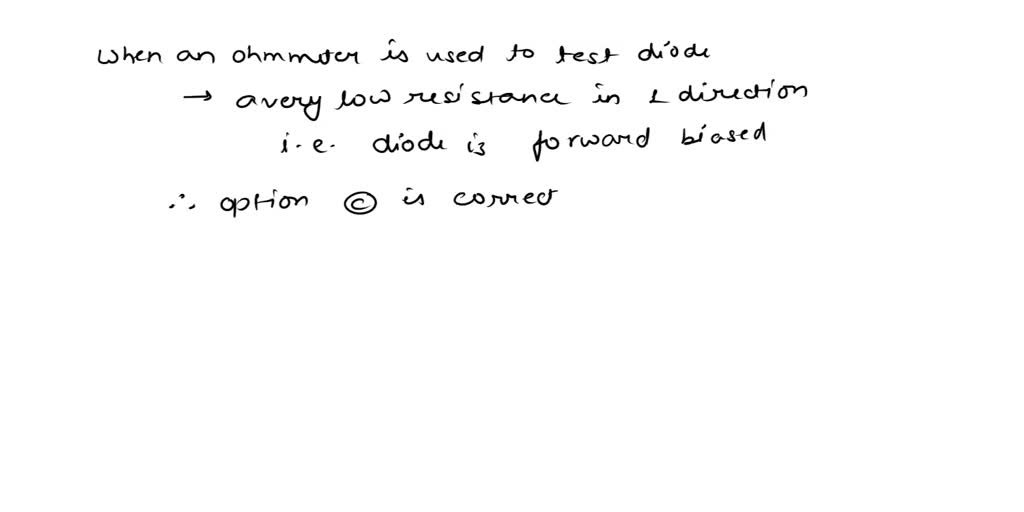 When an ohmmter is used to test diode
→ a very low resistance in 1 direction
i.e. diode is forward biased
∴ option ⓒ is correct